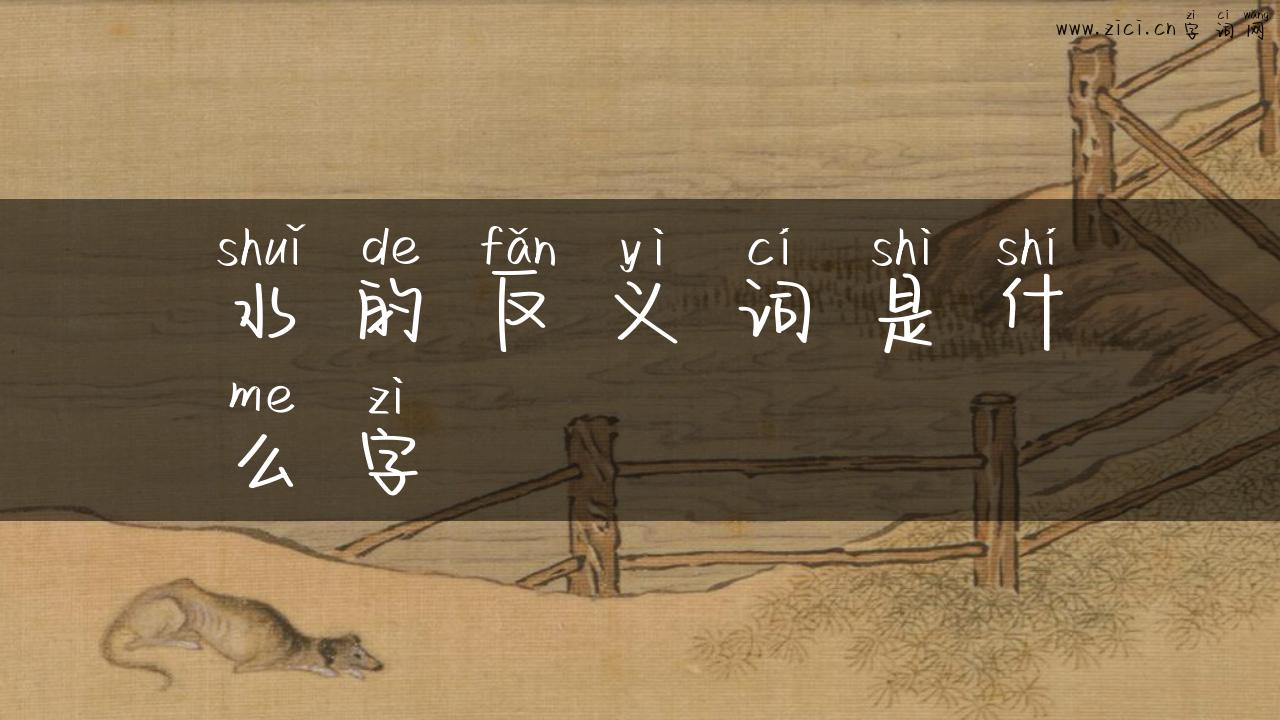 zì cí wǎng
www.zici.cn字词网
shuǐ de fǎn yì cí shì shí
水的反义词是什
me zì
么字